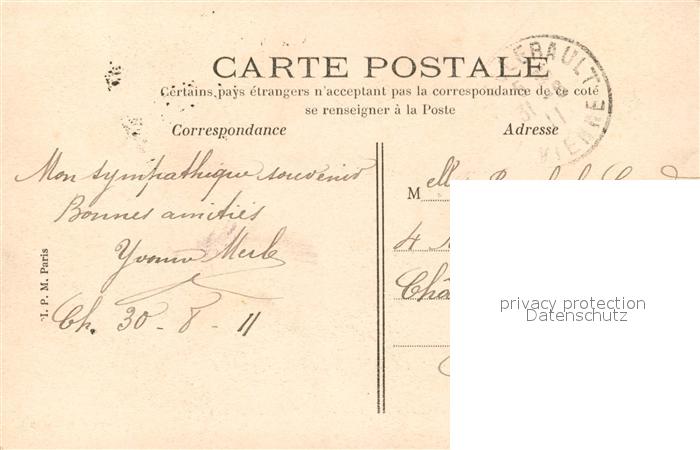 CARTE POSTALE
Certains pays étrangers n'acceptent pas la correspondance de ce coté
se renseigner à la Poste
Correspondance
Adresse
Mon sympathique souvenir
Bonnes amitiés
Yvonne Merle
Ch. 30 - 8 - 11
I. P. M. Paris
LLERAULT
31 - 8
11
VIENNE
Melle
4
Châ
privacy protection
Datenschutz